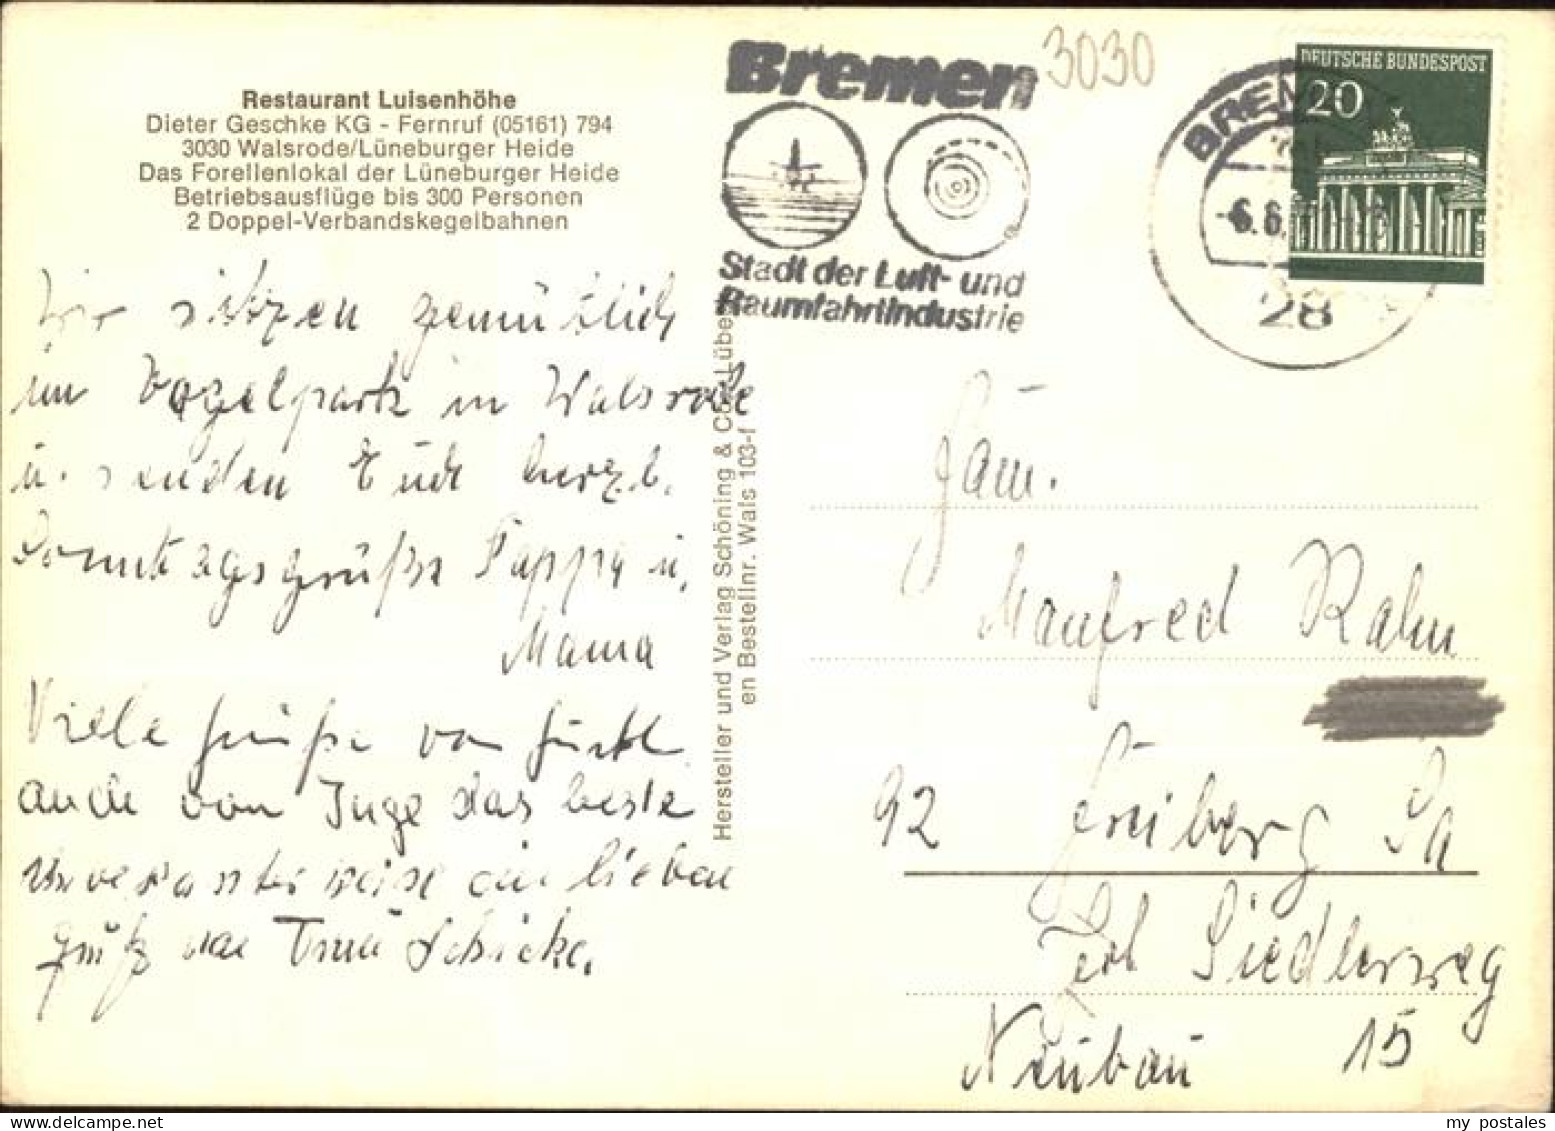 Restaurant Luisenhöhe
Dieter Geschke KG - Fernruf (05161) 794
3030 Walsrode/Lüneburger Heide
Das Forellenlokal der Lüneburger Heide
Betriebsausflüge bis 300 Personen
2 Doppel-Verbandskegelbahnen
Wir sitzen gemütlich
im Vogelpark in Walsrode
u. senden Euch herzl.
Sonntagsgrüße Pappa u.
Mama
Viele Grüße von
auch von Inge das beste
ein lieben
von Schicke.
Hersteller und Verlag Schöning & Co Lübe
en Bestellnr. Wals 103-f
Bremen
Stadt der Luft- und
Raumfahrtindustrie
3030
BREM
-6.6.
28
DEUTSCHE BUNDESPOST
20
Fam.
Manfred Rahn
92 Freiberg Sa
Siedlerweg
Neubau 15
my postales